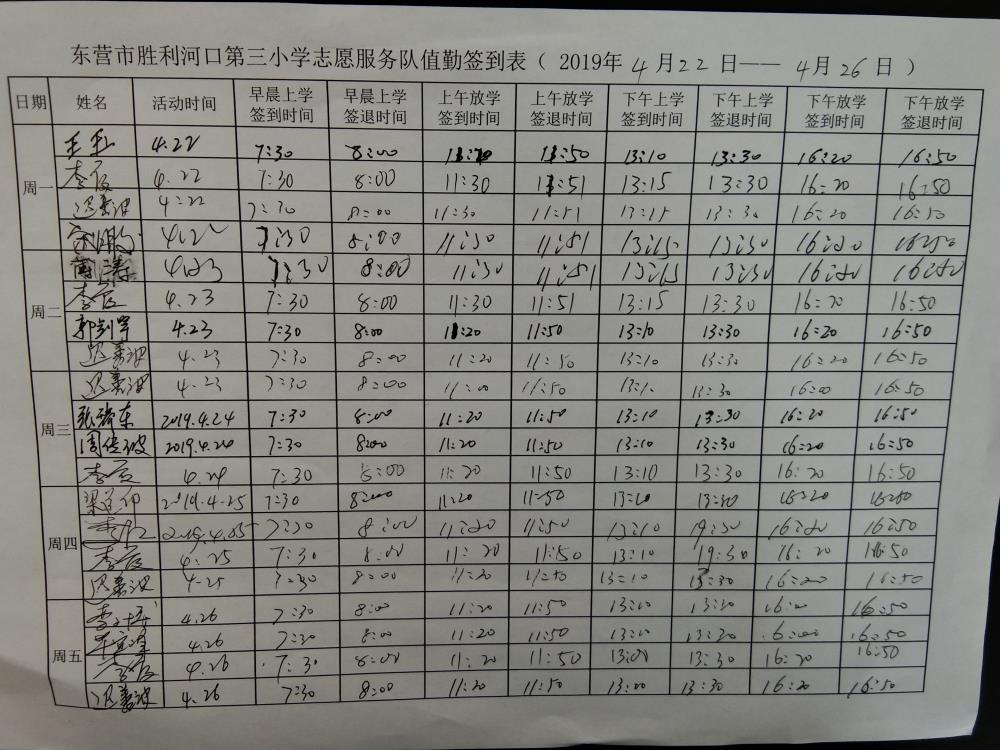 东营市胜利河口第三小学志愿服务队值勤签到表（ 2019年 4月22日—— 4月26日 ）
日期 姓名 活动时间 早晨上学签到时间 早晨上学签退时间 上午放学签到时间 上午放学签退时间 下午上学签到时间 下午上学签退时间 下午放学签到时间 下午放学签退时间
周一 4.22 7:30 8:00 11:50 13:10 13:30 16:20 16:50
4.22 7:30 8:00 11:30 11:51 13:15 13:30 16:20 16:50
4:22 7:30 8:00 11:30 11:51 13:15 13:30 16:20 16:50
7:30 8:00 11:30 11:51 13:15 13:30 16:20 16:50
周二 4.23 7:30 8:00 11:30 11:51 13:15 13:30 16:20 16:50
4.23 7:30 8:00 11:30 11:51 13:15 13:30 16:20 16:50
4.23 7:30 8:00 11:20 11:50 13:10 13:30 16:20 16:50
4.23 7:30 8:00 11:20 11:50 13:10 13:30 16:20 16:50
周三 4.23 7:30 8:00 11:50 16:50
2019.4.24 7:30 8:00 11:20 11:50 13:10 13:30 16:20 16:50
2019.4.24 7:30 8:00 11:20 11:50 13:10 13:30 16:20 16:50
4.24 7:30 8:00 11:20 11:50 13:10 13:30 16:20 16:50
周四 2019.4.25 7:30 8:00 11:20 11:50 13:10 13:30 16:20 16:50
7:30 8:00 11:20 11:50 13:10 16:20 16:50
4.25 7:30 8:00 11:20 11:50 13:10 19:30 16:20 16:50
4.25 7:30 8:00 11:20 11:50 13:10 13:30 16:20 16:50
周五 4.26 7:30 8:00 11:20 11:50 13:10 13:30 16:50
4.26 7:30 8:00 11:20 11:50 13:10 13:30 16:00 16:50
4.26 7:30 8:00 11:20 11:50 13:00 13:30 16:20 16:50
4.26 7:30 8:00 11:20 11:50 13:00 13:30 16:20 16:50